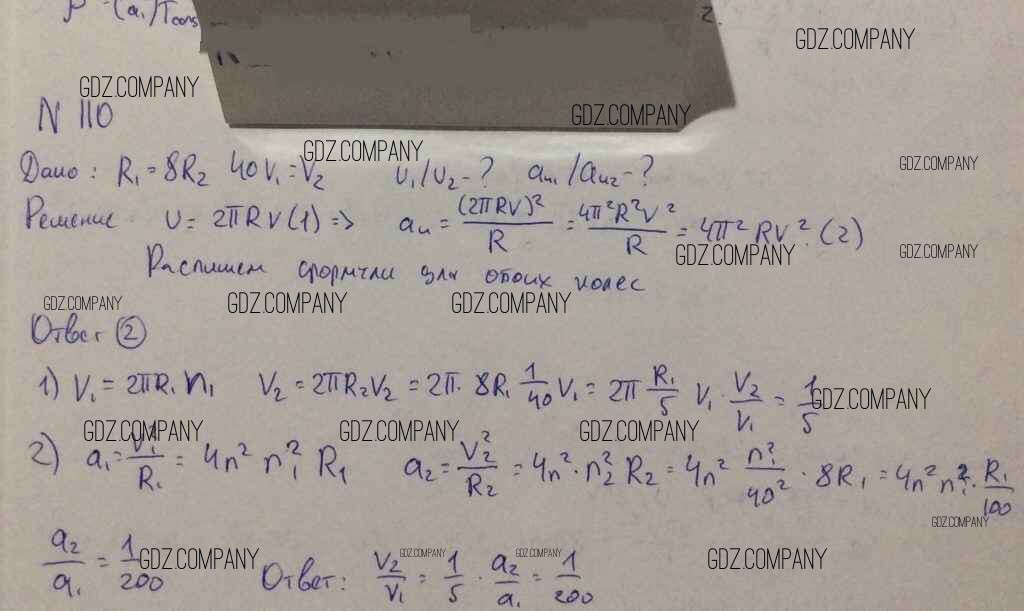 (a₁)Tcons 2.
GDZ.COMPANY
GDZ.COMPANY
GDZ.COMPANY
N 110
GDZ.COMPANY
Дано: R₁ = 8R₂ 40ν₁ = V₂ υ₁/υ₂ - ? aц₁/aц₂ - ?
GDZ.COMPANY
Решение υ = 2πRν (1) => aц = (2πRν)²/R = 4π²R²ν²/R = 4π²Rν². (2)
GDZ.COMPANY GDZ.COMPANY
Распишем формулы для обоих колес
GDZ.COMPANY GDZ.COMPANY GDZ.COMPANY
Ответ ②
1) V₁ = 2πR₁n₁ V₂ = 2πR₂V₂ = 2π · 8R₁ 1/40 V₁ = 2π R₁/5 V₁ · V₂/V₁ = 1/5
GDZ.COMPANY
GDZ.COMPANY GDZ.COMPANY GDZ.COMPANY
2) a₁ = V₁²/R₁ = 4n² n₁² R₁ a₂ = V₂²/R₂ = 4n² · n₂² R₂ = 4n² n₁²/40² · 8R₁ = 4n² n₁² · R₁/100
GDZ.COMPANY
a₂/a₁ = 1/200 Ответ: V₂/V₁ = 1/5 · a₂/a₁ = 1/200
GDZ.COMPANY GDZ.COMPANY GDZ.COMPANY GDZ.COMPANY